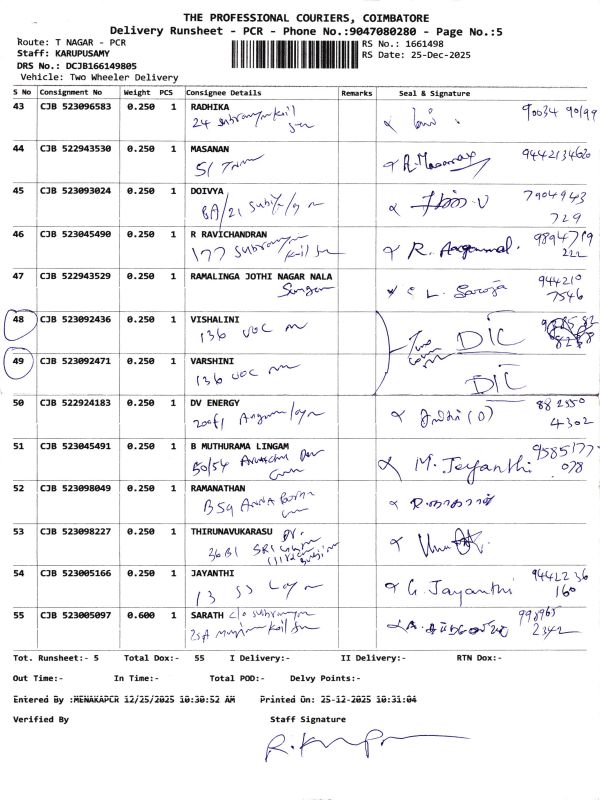 THE PROFESSIONAL COURIERS, COIMBATORE
Delivery Runsheet - PCR - Phone No.:9047080280 - Page No.:5
Route: T NAGAR - PCR
RS No.: 1661498
Staff: KARUPUSAMY
RS Date: 25-Dec-2025
DRS No.: DCJB166149805
Vehicle: Two Wheeler Delivery
S No Consignment No Weight PCS Consignee Details Remarks Seal & Signature
43 CJB 523096583 0.250 1 RADHIKA
24
90034 90199
44 CJB 522943530 0.250 1 MASANAN
51
9442134620
45 CJB 523093024 0.250 1 DOIVYA
7904943
729
46 CJB 523045490 0.250 1 R RAVICHANDRAN
177
9894719
222
47 CJB 522943529 0.250 1 RAMALINGA JOTHI NAGAR NALA
L. Saroja
944210
7546
48 CJB 523092436 0.250 1 VISHALINI
136 VOC
DIC
49 CJB 523092471 0.250 1 VARSHINI
136 VOC
DIC
50 CJB 522924183 0.250 1 DV ENERGY
882550
4302
51 CJB 523045491 0.250 1 B MUTHURAMA LINGAM
50/54
M. Jeyanthi
9585177
078
52 CJB 523098049 0.250 1 RAMANATHAN
B59 ANNA
53 CJB 523098227 0.250 1 THIRUNAVUKARASU
36B1 SRI
54 CJB 523005166 0.250 1 JAYANTHI
13 SS
G. Jayanthi
9442236
160
55 CJB 523005097 0.600 1 SARATH C/o
25A
998965
2342
Tot. Runsheet:- 5 Total Dox:- 55 I Delivery:- II Delivery:- RTN Dox:-
Out Time:- In Time:- Total POD:- Delvy Points:-
Entered By :MENAKAPCR 12/25/2025 10:30:52 AM Printed On: 25-12-2025 10:31:04
Verified By Staff Signature